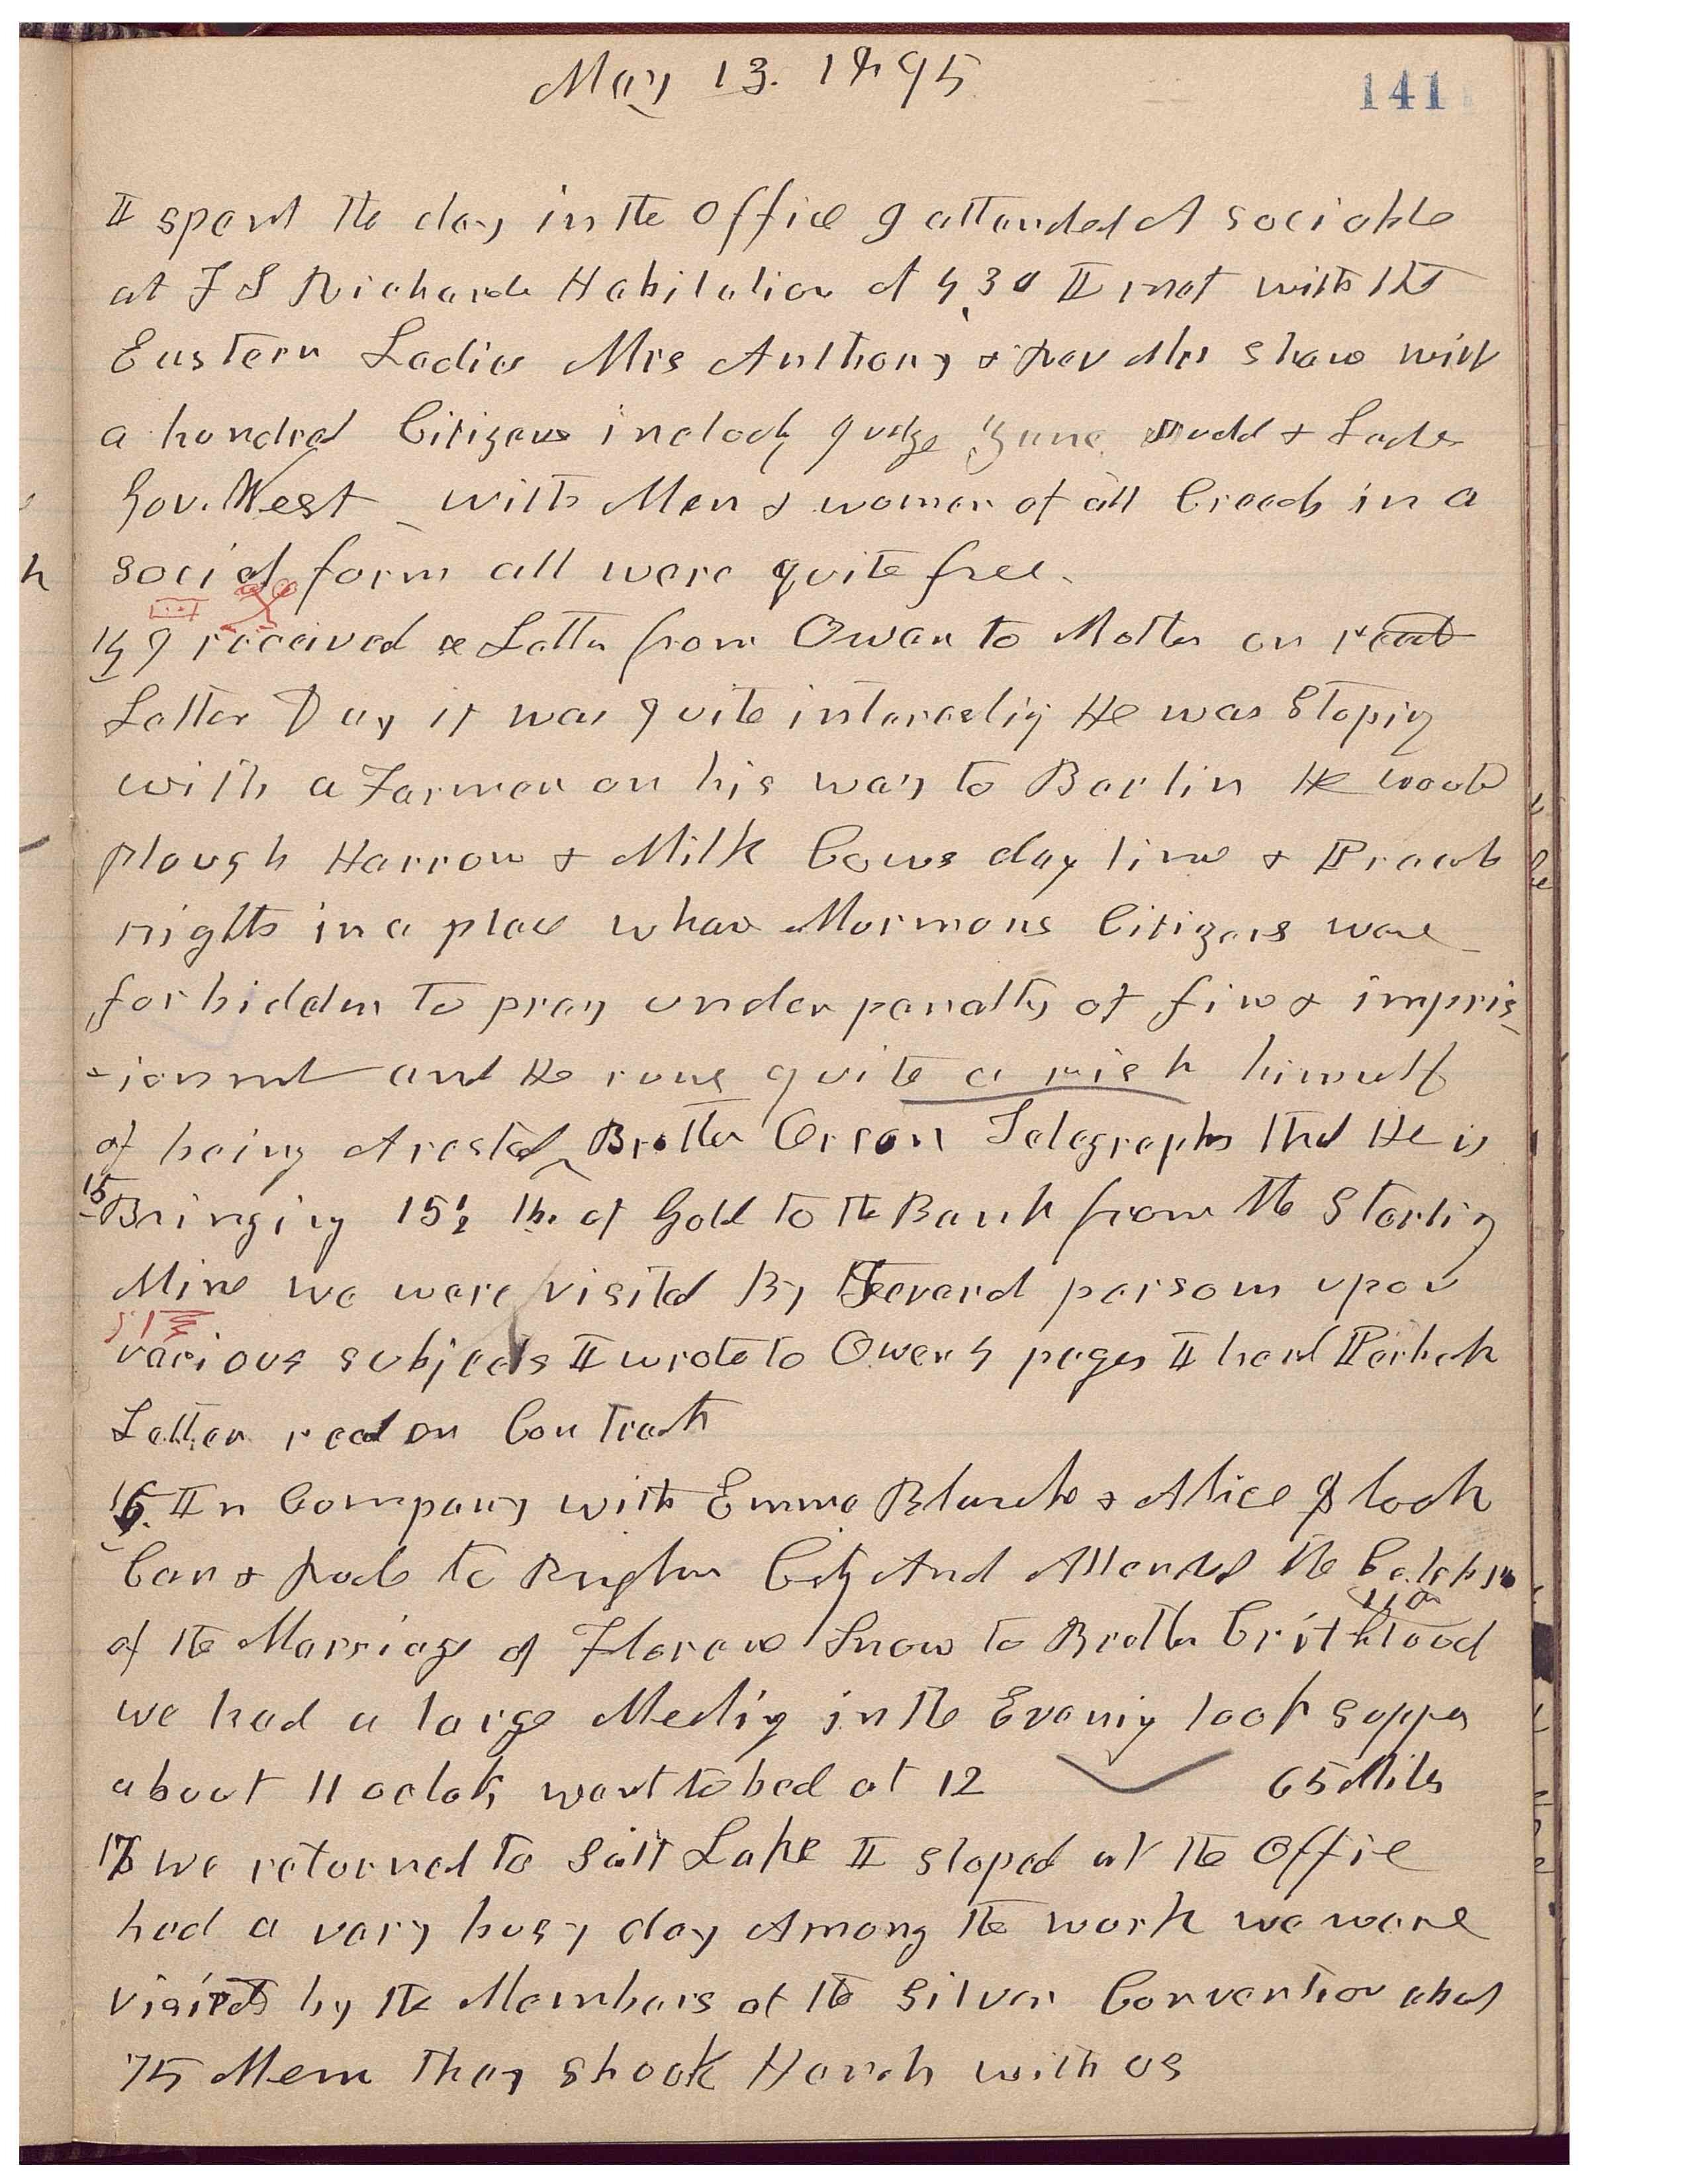 May 13. 1895
141
I spent the day in the office I attended A sociable
at F S Richards Habitation at 4,30 I met with the
Eastern Ladies Mrs Anthony & Rev Mrs Shaw with
a hundred Citizens includg Judge Zane Judd & Lades
Gov. West with Men & women of all Creeds in a
social form all were quite free.
14 I received a Letter from Owen to Mother on
Letter Day it was quite interesting He was Stoping
with a Farmer on his way to Berlin He would
plough Harrow & Milk Cows day time & Preach
nights in a place whare Mormons Citizens were
forbidden to pray under panalty of fine & impris
-ionmt and He runs quite a risk himself
of being Arested Brother Orson Telegraphs that He is
15 Bringing 15½ lb. of Gold to the Bank from the Sterling
Mine we were visited By Several persons upon
various subjects I wrote to Owen 4 pages I heard
Letter read on Contract
16. In Company with Emma Blanche & Alice I took
Car & Rode to Brigham City And Attended the Celebra
tion
of the Marriage of Florence Snow to Brother Critchlood
we had a large Meeting in the Evening took supper
about 11 oclok went to bed at 12 65 Miles
17 we returned to Salt Lake I stoped at the Office
had a vary busy day Among the work we ware
visited by the Members of the Silver Convention about
75 Mem They shook Hands with us